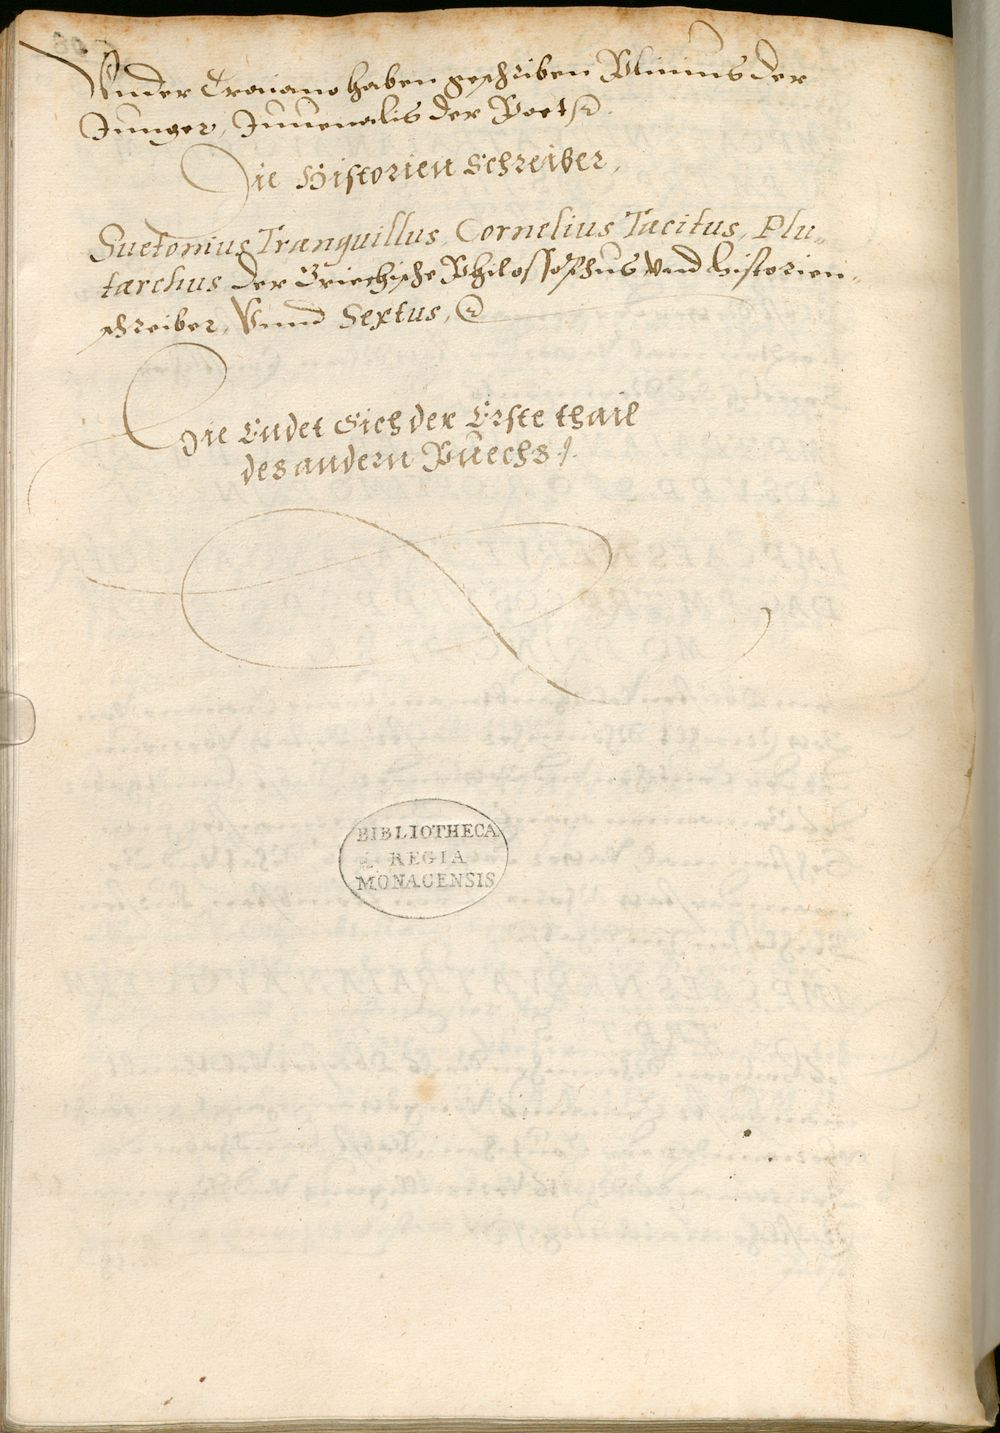 Vnder Traiano haben geschriben Plinius der
Junger, Juuenalis der Poet
Die Historien Schreiber,
Suetonius Tranquillus, Cornelius Tacitus, Plu„
tarchus der Griechische Philossophus Vnd historien„
schreiber, Vnnd Sextus,
Die Endet Sich der Erste thail
des andern Buechs
BIBLIOTHECA
REGIA
MONACENSIS